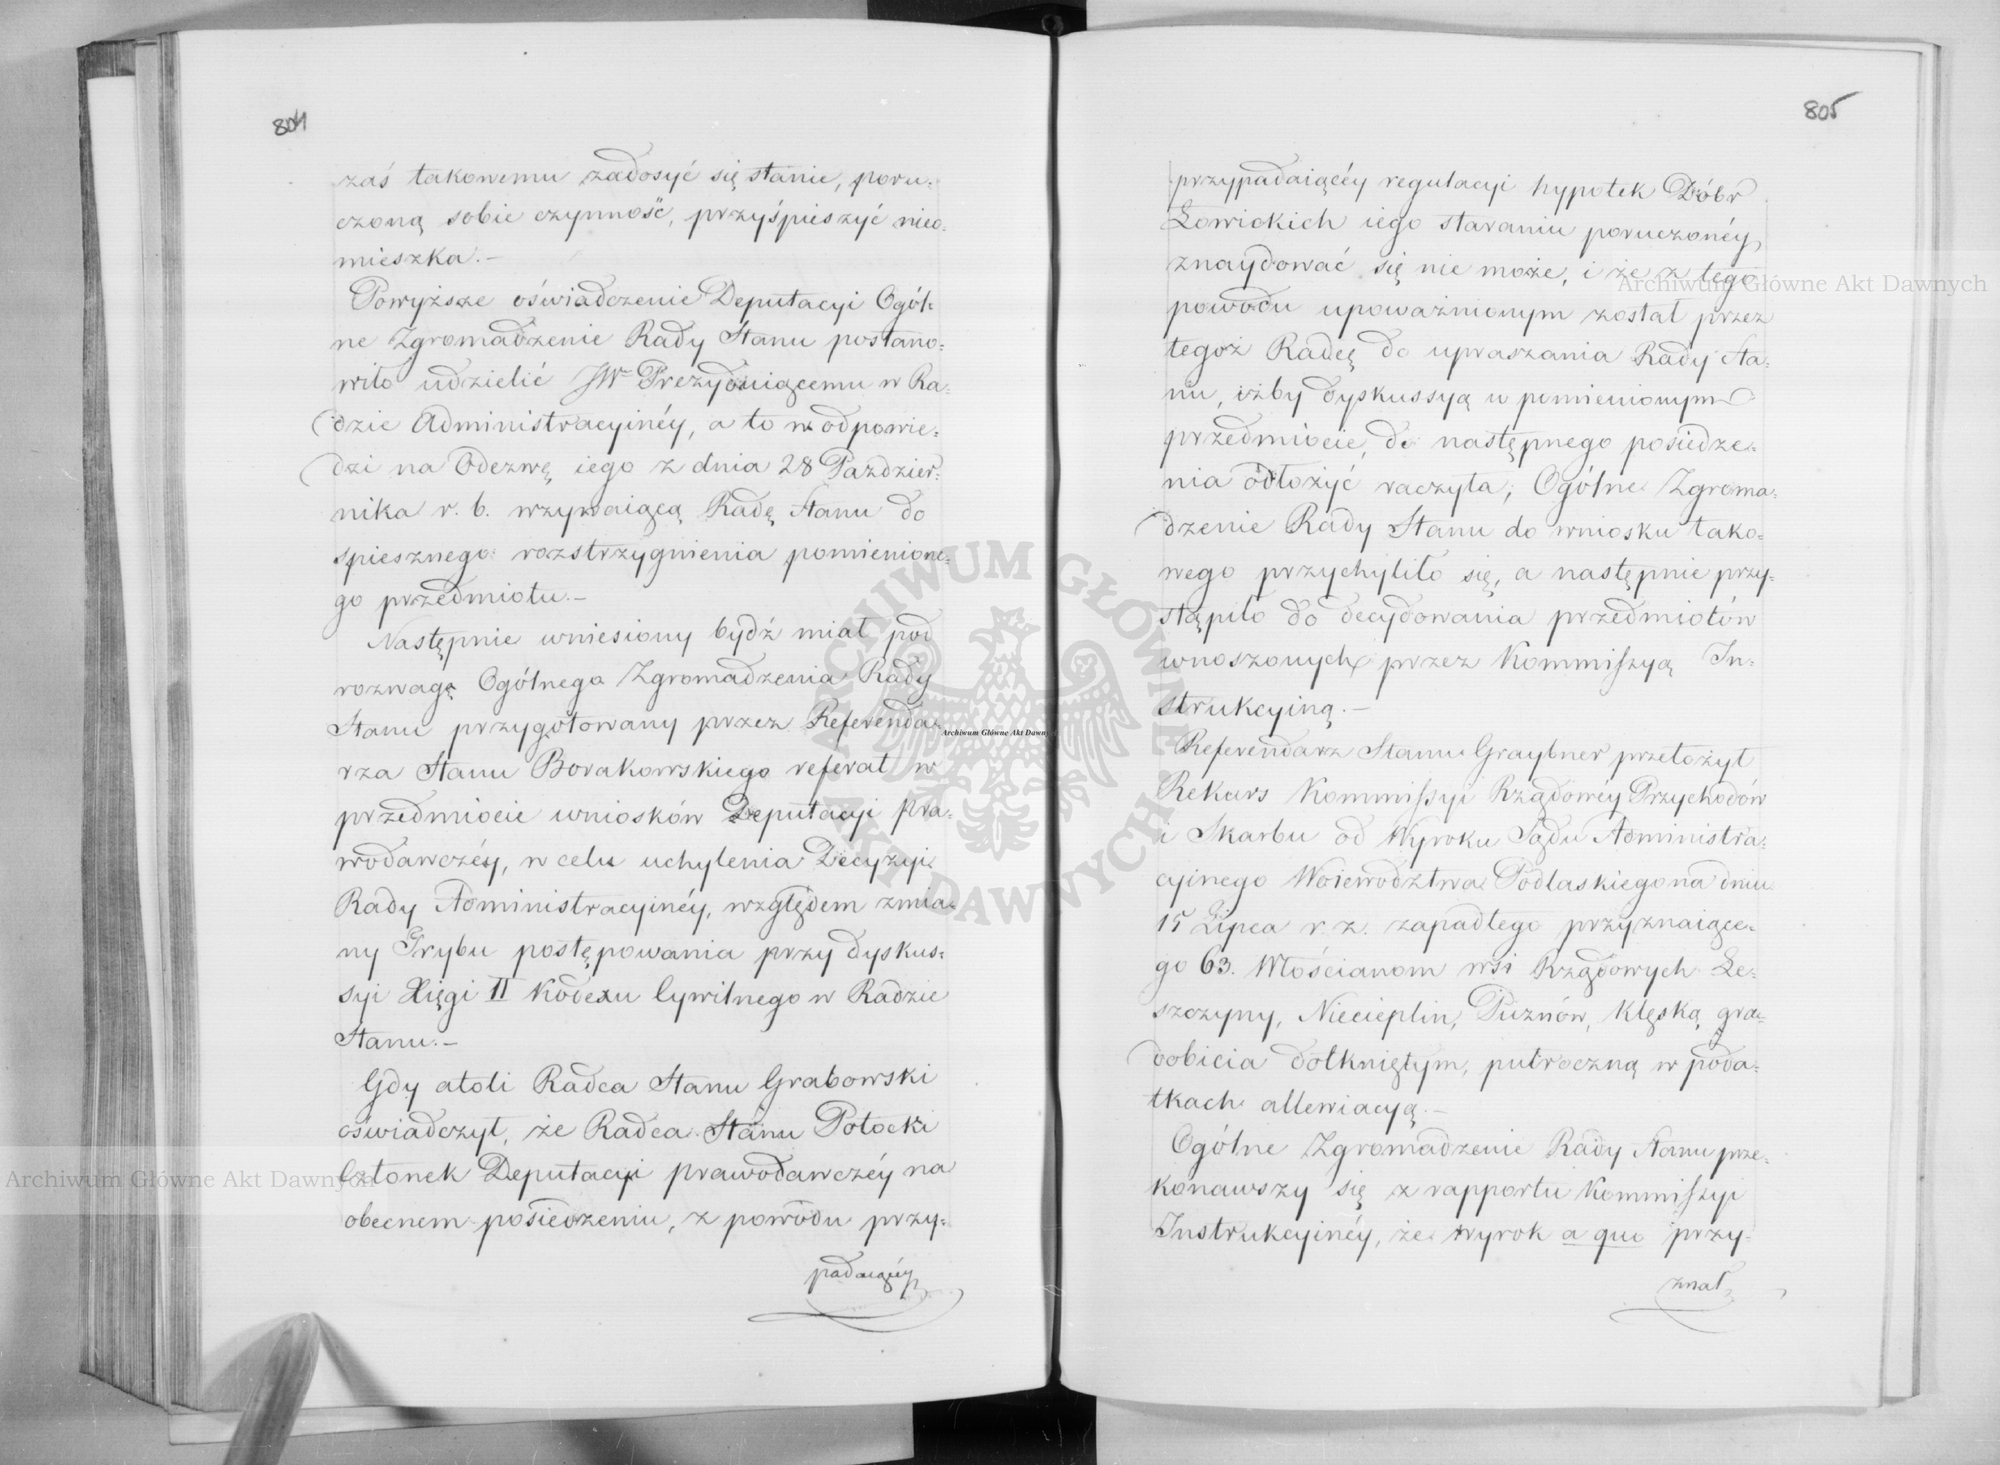 804
zaś takowemu zadosyć się stanie, poru-
czoną sobie czynność, przyśpieszyć nieo-
mieszka.—
Powyższe oświadczenie Deputacyi Ogól-
ne Zgromadzenie Rady Stanu postano-
wiło udzielić JW Prezyduiącemu w Ra-
dzie Administracyinéy, a to w odpowie-
dzi na Odezwę iego z dnia 28 Paździer-
nika r. b. wzywaiącą Radę Stanu do
spiesznego rozstrzygnienia pomienione-
go przedmiotu.—
Następnie wniesiony bydź miał pod
rozwagę Ogólnego Zgromadzenia Rady
Stanu przygotowany przez Referenda-
rza Stanu Borakowskiego referat w
przedmiocie wniosków Deputacyi Pra-
wodawczéy, w celu uchylenia Decyzyi
Rady Administracyinéy, względem zmia-
ny Trybu postępowania przy dyskus-
syi Xięgi II Kodexu Cywilnego w Radzie
Stanu.—
Gdy atoli Radca Stanu Grabowski
oświadczył, że Radca Stanu Potocki
Członek Deputacyi prawodawczéy na
obecnem posiedzeniu, z powodu przy-
padaiącéy
805
przypadaiącéy regulacyi hypotek Dóbr
Łowickich iego staraniu poruczonéy,
znaydować się nie może, i że z tego
powodu upoważnionym został przez
tegoż Radcę do upraszania Rady Sta-
nu, iżby dyskussyą w pomienionym
przedmiocie, do następnego posiedze-
nia odłożyć raczyła; Ogólne Zgroma-
dzenie Rady Stanu do wniosku tako-
wego przychyliło się, a następnie przy-
stąpiło do decydowania przedmiotów
wnoszonych przez Kommissyą In-
strukcyiną.—
Referendarz Stanu Graybner przełożył
Rekurs Kommissyi Rządowéy Przychodów
i Skarbu od Wyroku Sądu Administra-
cyinego Woiewództwa Podlaskiego na dniu
15 Lipca r. z. zapadłego przyznaiące-
go 63. Włościanom wsi Rządowych Le-
szczyny, Niecieplin, Puznów, klęską gra-
dobicia dotkniętym, półroczną w poda-
tkach allewiacyą.—
Ogólne Zgromadzenie Rady Stanu prze-
konawszy się z rapportu Kommissyi
Instrukcyinéy, że wyrok a quo przy-
znał
Archiwum Główne Akt Dawnych
Archiwum Główne Akt Dawnych
Archiwum Główne Akt Dawnych
ARCHIWUM GŁÓWNE AKT DAWNYCH